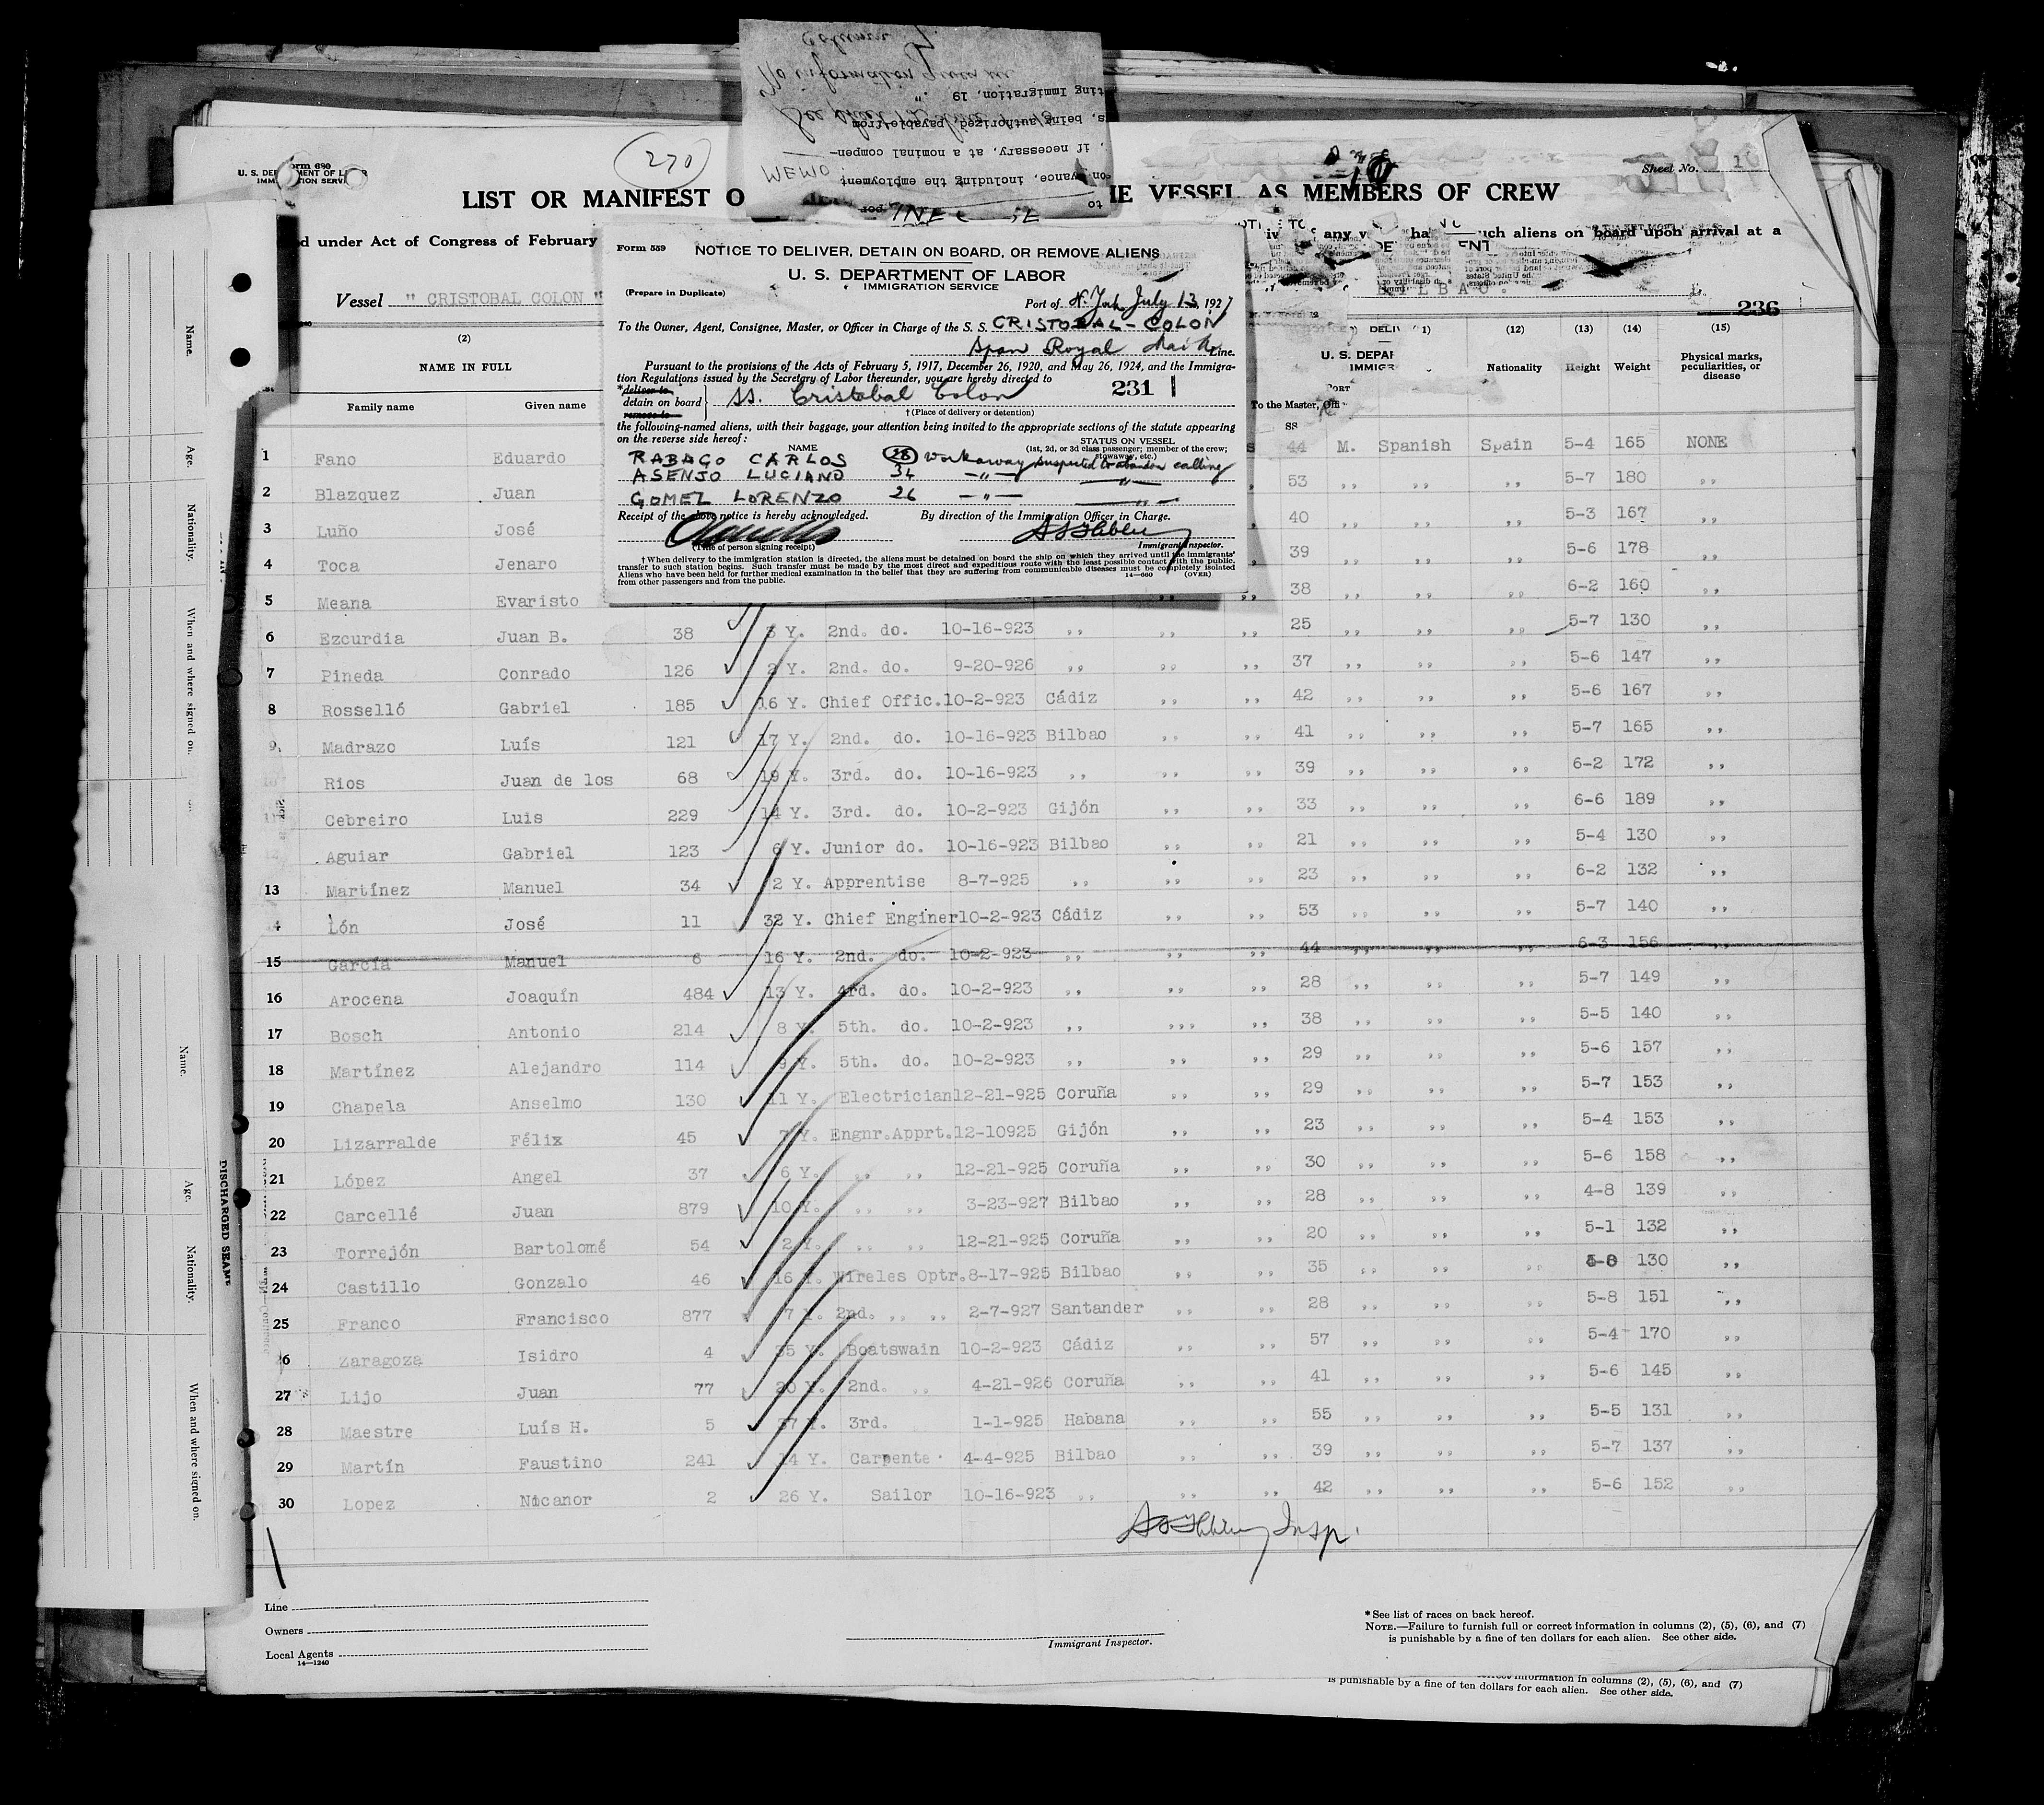 Column 7.
No information given in
MEMO
ting Immigration, 19
s, being authorized, payable from
, if necessary, at a nominal compen-
onveyance, including the employment
to
270
Form 680
U. S. DEPARTMENT OF LABOR
IMMIGRATION SERVICE
Sheet No.
LIST OR MANIFEST O
E VESSEL AS MEMBERS OF CREW
d under Act of Congress of February
such aliens on board upon arrival at a
Vessel " CRISTOBAL COLON "
BILBAO.
236
Form 559
NOTICE TO DELIVER, DETAIN ON BOARD, OR REMOVE ALIENS
U. S. DEPARTMENT OF LABOR
IMMIGRATION SERVICE
(Prepare in Duplicate)
Port of N. York July 13, 1927
To the Owner, Agent, Consignee, Master, or Officer in Charge of the S. S. CRISTOBAL-COLON
Span Royal Mail Line.
Pursuant to the provisions of the Acts of February 5, 1917, December 26, 1920, and May 26, 1924, and the Immigra-
tion Regulations issued by the Secretary of Labor thereunder, you are hereby directed to
*deliver to
detain on board
remove to
SS. Cristobal Colon
231
†(Place of delivery or detention)
the following-named aliens, with their baggage, your attention being invited to the appropriate sections of the statute appearing
on the reverse side hereof:
NAME
STATUS ON VESSEL
(1st, 2d, or 3d class passenger; member of the crew;
stowaway, etc.)
RABAGO CARLOS 28 workaway suspected to abandon calling
ASENJO LUCIANO 34 -"- -"-
GOMEZ LORENZO 26 -"- -"-
Receipt of the above notice is hereby acknowledged.
By direction of the Immigration Officer in Charge.
(Title of person signing receipt)
Immigrant Inspector.
†When delivery to the immigration station is directed, the aliens must be detained on board the ship on which they arrived until the immigrants'
transfer to such station begins. Such transfer must be made by the most direct and expeditious route with the least possible contact with the public.
Aliens who have been held for further medical examination in the belief that they are suffering from communicable diseases must be completely isolated
from other passengers and from the public.
14—660 (OVER)
(2) (12) (13) (14) (15)
NAME IN FULL
Family name Given name
U. S. DEPAR
To the Master, Offi
Nationality Height Weight Physical marks, peculiarities, or disease
1 Fano Eduardo 44 M. Spanish Spain 5-4 165 NONE
2 Blazquez Juan 53 ,, ,, ,, 5-7 180 ,,
3 Luño José 40 ,, ,, ,, 5-3 167 ,,
4 Toca Jenaro 39 ,, ,, ,, 5-6 178 ,,
5 Meana Evaristo 38 ,, ,, ,, 6-2 160 ,,
6 Ezcurdia Juan B. 38 3 Y. 2nd. do. 10-16-923 ,, ,, ,, 25 ,, ,, ,, 5-7 130 ,,
7 Pineda Conrado 126 2 Y. 2nd. do. 9-20-926 ,, ,, ,, 37 ,, ,, ,, 5-6 147 ,,
8 Rosselló Gabriel 185 16 Y. Chief Offic. 10-2-923 Cádiz ,, ,, 42 ,, ,, ,, 5-6 167 ,,
9 Madrazo Luís 121 17 Y. 2nd. do. 10-16-923 Bilbao ,, ,, 41 ,, ,, ,, 5-7 165 ,,
10 Rios Juan de los 68 19 Y. 3rd. do. 10-16-923 ,, ,, ,, 39 ,, ,, ,, 6-2 172 ,,
11 Cebreiro Luis 229 14 Y. 3rd. do. 10-2-923 Gijón ,, ,, 33 ,, ,, ,, 6-6 189 ,,
12 Aguiar Gabriel 123 6 Y. Junior do. 10-16-923 Bilbao ,, ,, 21 ,, ,, ,, 5-4 130 ,,
13 Martínez Manuel 34 2 Y. Apprentise 8-7-925 ,, ,, ,, 23 ,, ,, ,, 6-2 132 ,,
14 Lón José 11 32 Y. Chief Enginer 10-2-923 Cádiz ,, ,, 53 ,, ,, ,, 5-7 140 ,,
15 García Manuel 6 16 Y. 2nd. do. 10-2-923 ,, ,, ,, 44 ,, ,, ,, 6-3 156 ,,
16 Arocena Joaquín 484 13 Y. 4rd. do. 10-2-923 ,, ,, ,, 28 ,, ,, ,, 5-7 149 ,,
17 Bosch Antonio 214 8 Y. 5th. do. 10-2-923 ,, ,,, ,, 38 ,, ,, ,, 5-5 140 ,,
18 Martínez Alejandro 114 9 Y. 5th. do. 10-2-923 ,, ,, ,, 29 ,, ,, ,, 5-6 157 ,,
19 Chapela Anselmo 130 11 Y. Electrician 12-21-925 Coruña ,, ,, 29 ,, ,, ,, 5-7 153 ,,
20 Lizarralde Félix 45 7 Y. Engnr.Apprt. 12-10925 Gijón ,, ,, 23 ,, ,, ,, 5-4 153 ,,
21 López Angel 37 6 Y. ,, ,, 12-21-925 Coruña ,, ,, 30 ,, ,, ,, 5-6 158 ,,
22 Carcellé Juan 879 10 Y. ,, ,, 3-23-927 Bilbao ,, ,, 28 ,, ,, ,, 4-8 139 ,,
23 Torrejón Bartolomé 54 2 Y. ,, ,, 12-21-925 Coruña ,, ,, 20 ,, ,, ,, 5-1 132 ,,
24 Castillo Gonzalo 46 16 Y. Wireles Optr. 8-17-925 Bilbao ,, ,, 35 ,, ,, ,, 5-8 130 ,,
25 Franco Francisco 877 7 Y. 2nd. ,, ,, 2-7-927 Santander ,, ,, 28 ,, ,, ,, 5-8 151 ,,
26 Zaragoza Isidro 4 35 Y. Boatswain 10-2-923 Cádiz ,, ,, 57 ,, ,, ,, 5-4 170 ,,
27 Lijo Juan 77 20 Y. 2nd. ,, 4-21-926 Coruña ,, ,, 41 ,, ,, ,, 5-6 145 ,,
28 Maestre Luís H. 5 37 Y. 3rd. 1-1-925 Habana ,, ,, 55 ,, ,, ,, 5-5 131 ,,
29 Martín Faustino 241 14 Y. Carpente 4-4-925 Bilbao ,, ,, 39 ,, ,, ,, 5-7 137 ,,
30 Lopez Nicanor 2 26 Y. Sailor 10-16-923 ,, ,, ,, 42 ,, ,, ,, 5-6 152 ,,
Insp.
Line
Owners
Local Agents
14—1240
Immigrant Inspector.
*See list of races on back hereof.
NOTE.—Failure to furnish full or correct information in columns (2), (5), (6), and (7)
is punishable by a fine of ten dollars for each alien. See other side.
correct information in columns (2), (5), (6), and (7)
is punishable by a fine of ten dollars for each alien. See other side.
Name.
Age.
Nationality.
When and where signed on.
Name.
Age.
Nationality.
When and where signed on.
DISCHARGED SEAME